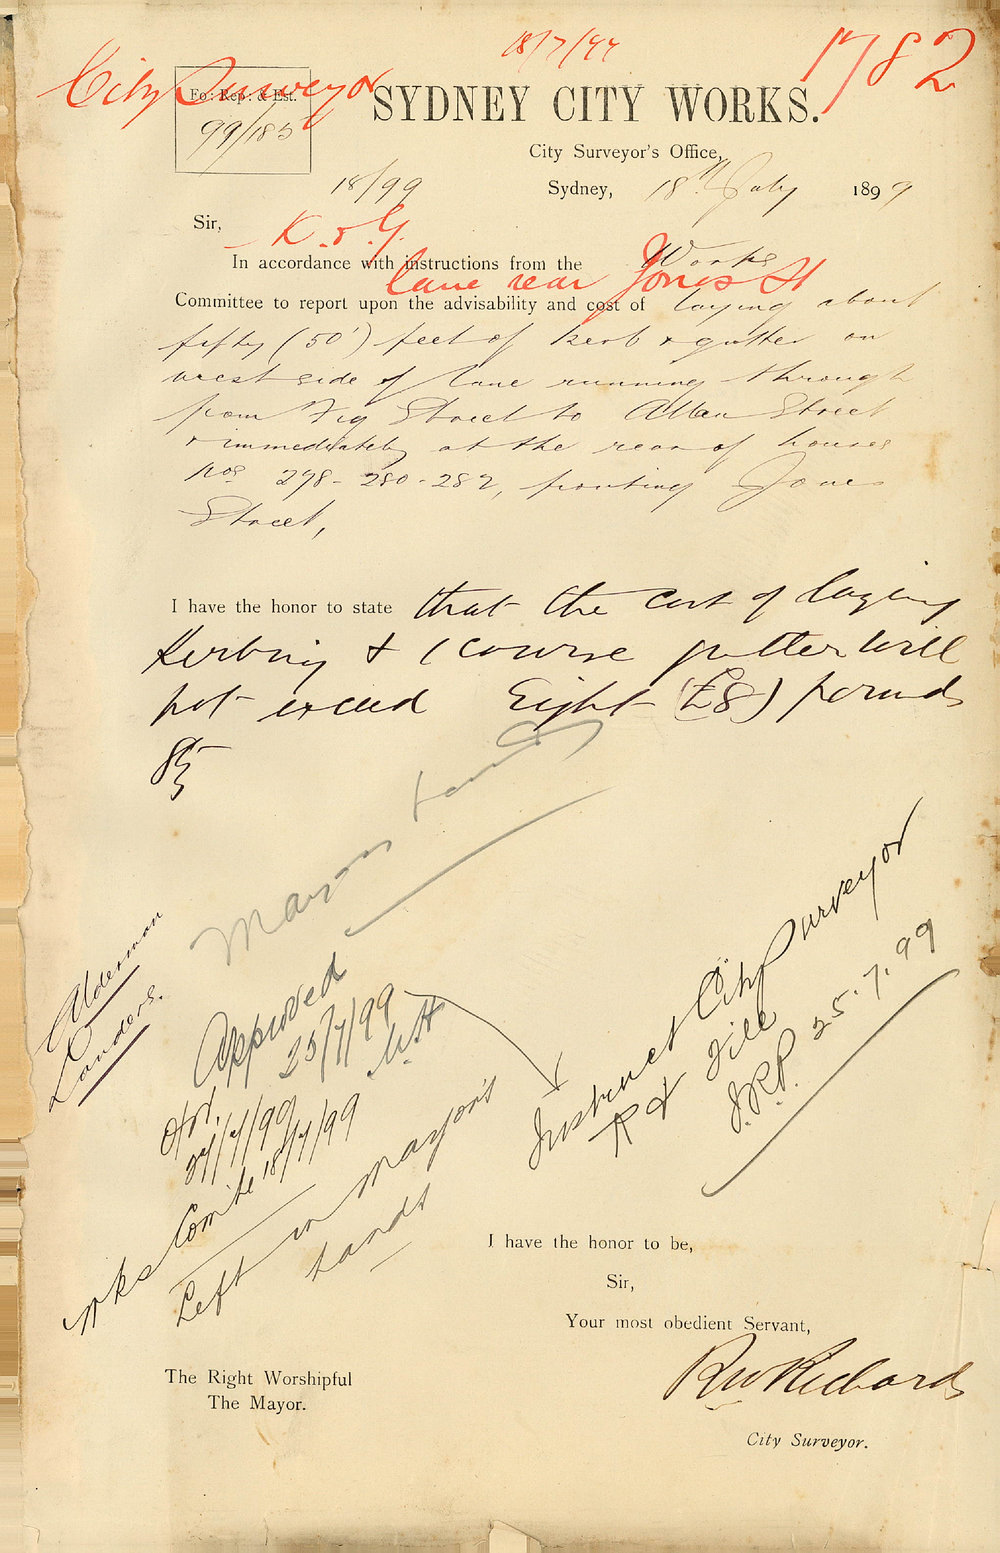 18/7/99
1782
City Surveyor
Fo: Rep: & Est.
99/185
SYDNEY CITY WORKS.
City Surveyor's Office,
18/99
Sydney, 18th July 1899
Sir,
K. & G.
In accordance with instructions from the Works
lane rear Jones St
Committee to report upon the advisability and cost of laying about
fifty (50') feet of kerb & gutter on
west side of lane running through
from Fig Street to Allen Street
& immediately at the rear of houses
Nos 278 - 280 - 282, fronting Jones
Street,
I have the honor to state that the cost of laying
Kerbing & 1 course gutter will
not exceed Eight (£8) pounds
Mayors hands
Alderman
Landers.
Approved
25/7/99
Instruct City Surveyor
R & File
J.R.P. 25.7.99
27/7/99
Wks Comtee 18/7/99
Left in Mayor's
hands
I have the honor to be,
Sir,
Your most obedient Servant,
The Right Worshipful
The Mayor.
RW Richards
City Surveyor.